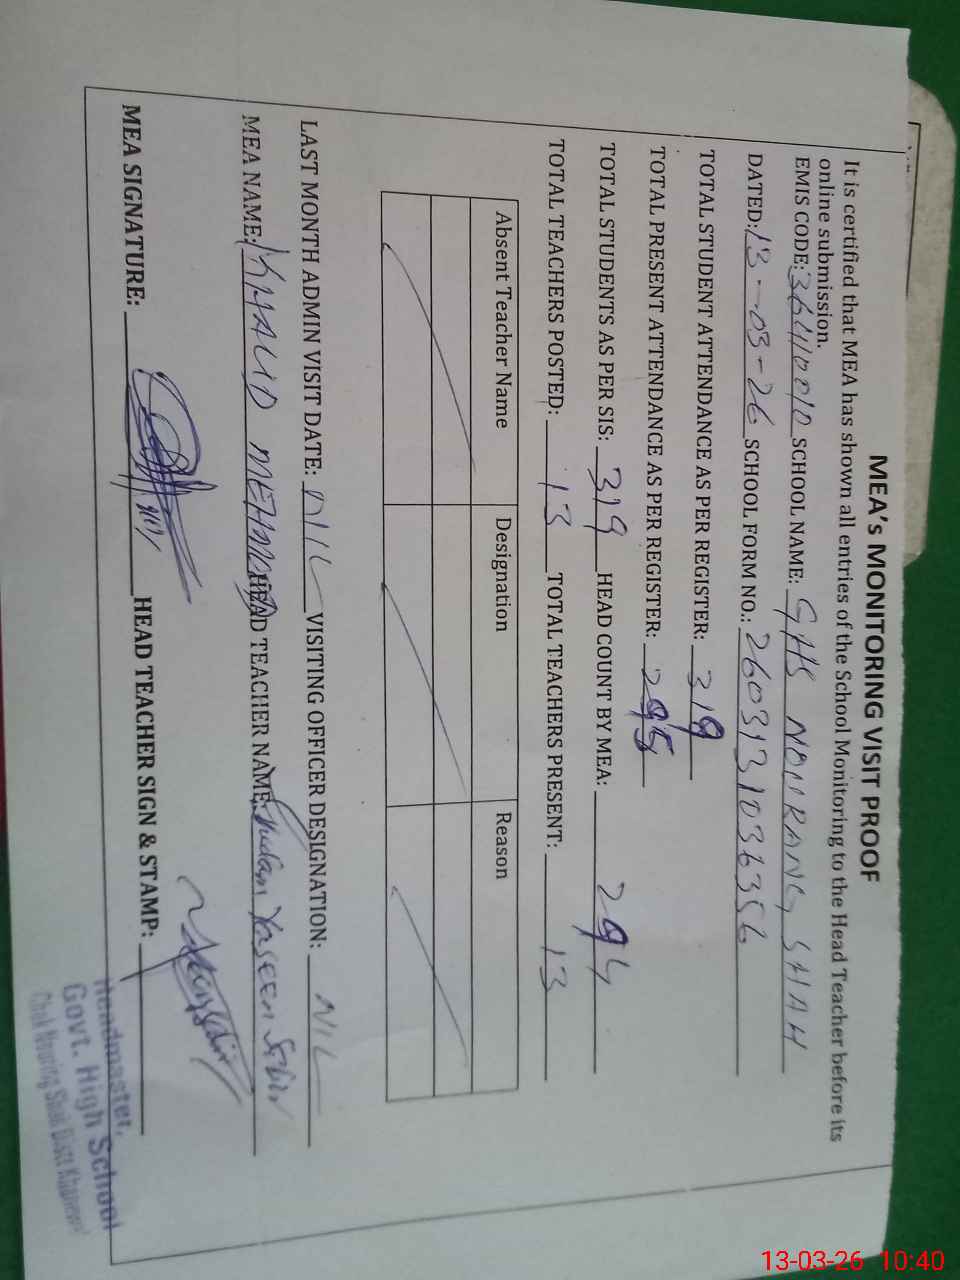 MEA's MONITORING VISIT PROOF
It is certified that MEA has shown all entries of the School Monitoring to the Head Teacher before its
online submission.
EMIS CODE: 36410010 SCHOOL NAME: GHS NOURANG SHAH
DATED: 13-03-26 SCHOOL FORM NO.: 2603131036356
TOTAL STUDENT ATTENDANCE AS PER REGISTER: 319
TOTAL PRESENT ATTENDANCE AS PER REGISTER: 295
TOTAL STUDENTS AS PER SIS: 319 HEAD COUNT BY MEA: 294
TOTAL TEACHERS POSTED: 13 TOTAL TEACHERS PRESENT: 13
Absent Teacher Name Designation Reason
LAST MONTH ADMIN VISIT DATE: NIL VISITING OFFICER DESIGNATION: NIL
MEA NAME: KHALID MEHMOOD HEAD TEACHER NAME: Yaseen
MEA SIGNATURE: HEAD TEACHER SIGN & STAMP:
Headmaster,
Govt. High School
Chak Nourang Shah Distt. Khanewal
13-03-26 10:40